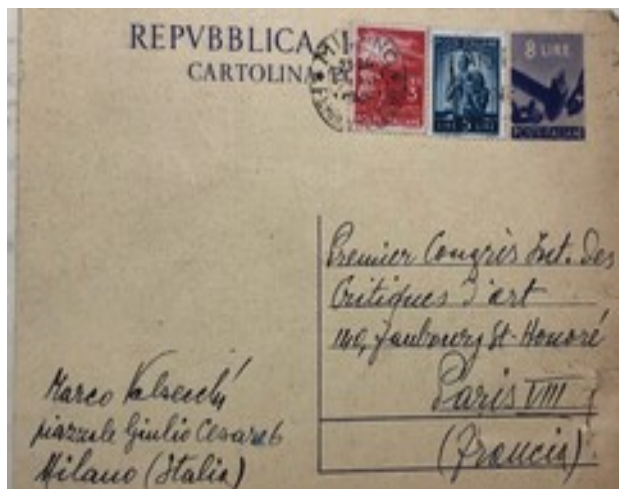 REPVBBLICA
CARTOLINA
MILANO
8 LIRE
POSTE ITALIANE
Premier Congrès Int. Des
Critiques d'art
140, faubourg St-Honoré
Paris VIII
(Francia)
Marco Valsecchi
piazzale Giulio Cesare 6
Milano (Italia)